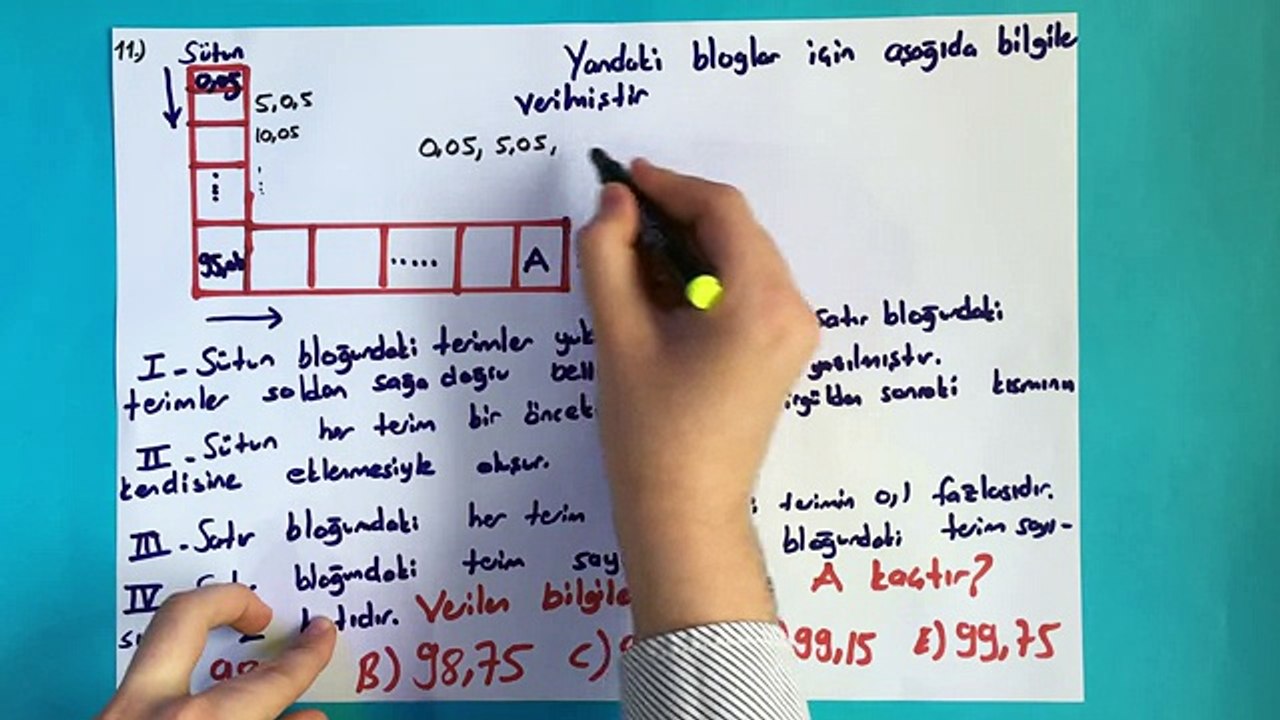 11.) Sütun
Yandaki bloglar için aşağıda bilgile
verilmiştir
0,05
5,0,5
10,05
0,05, 5,05,
95,05
A
I - Sütun bloğundaki terimler yuk Satır bloğundaki
terimler soldan sağa doğru bell yazılmıştır.
II - Sütun her terim bir öncek irgülden sonraki kısmının
kendisine eklenmesiyle oluşur.
III - Satır bloğundaki her terim terimin 0,1 fazlasıdır.
IV bloğundaki terim say bloğundaki terim sayı-
katıdır. Verilen bilgile A kaçtır?
B) 98,75 C) 99,15 E) 99,75